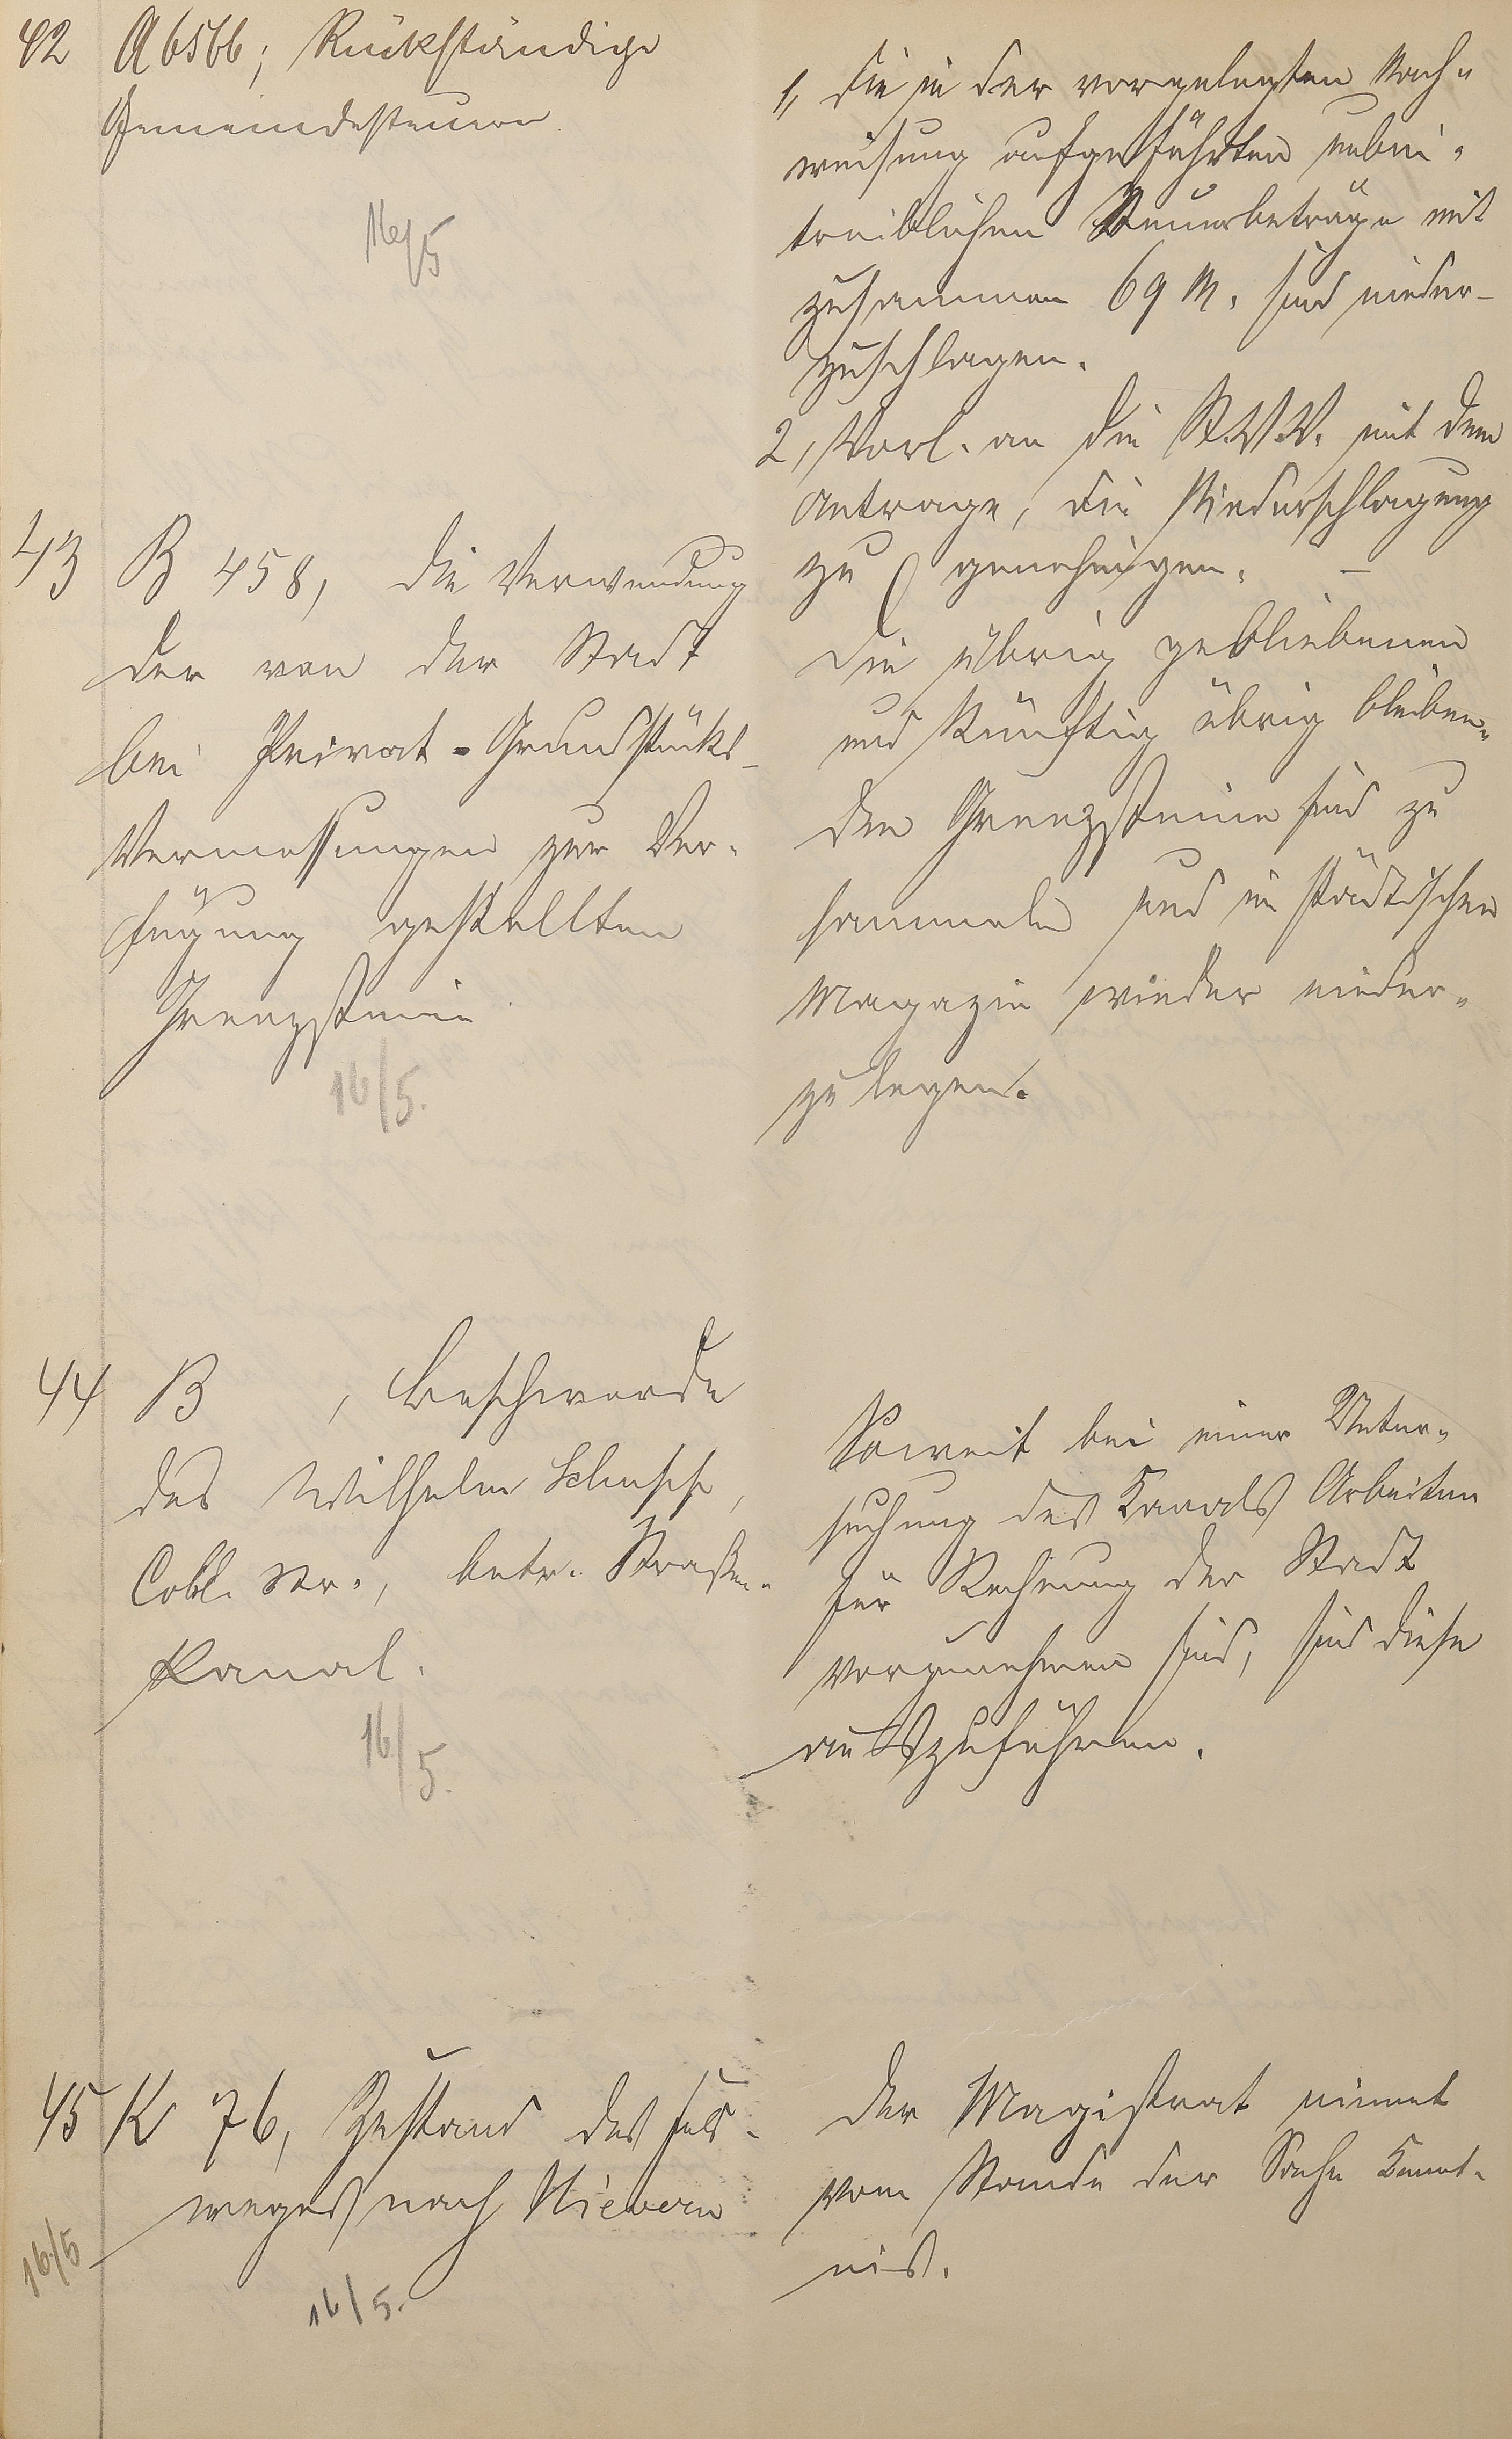 42 A 6566; Rückständige
Gemeindesteuern.
16/5
1, Die in der vorgelegten Nach-
weisung aufgeführten unbei-
treiblichen Steuerbeträge mit
zusammen 69 M. sind nieder-
zuschlagen.
2, Vorl. an die St.V.V. mit dem
Antrage, die Niederschlagung
zu genehmigen. —
43 B 458, die Verwendung
der von der Stadt
bei Privat-Grundstücks-
Vermessungen zur Ver-
fügung gestellten
Grenzsteine
16/5.
Die übrig gebliebenen
und künftig übrig bleiben-
den Grenzsteine sind zu
sammeln und im städtischen
Magazin wieder nieder-
zulegen.
44 B , Beschwerde
des Wilhelm
Cobl. Str., betr. Straßen-
kanal.
16/5.
Soweit bei einer Unter-
suchung des Kanals Arbeiten
für Rechnung der Stadt
vorzunehmen sind, sind diese
auszuführen.
45 K 76, Zustand des Feld-
weges nach Nievern
16/5
16/5.
Der Magistrat nimmt
vom Stande der Sache Kennt-
nis.